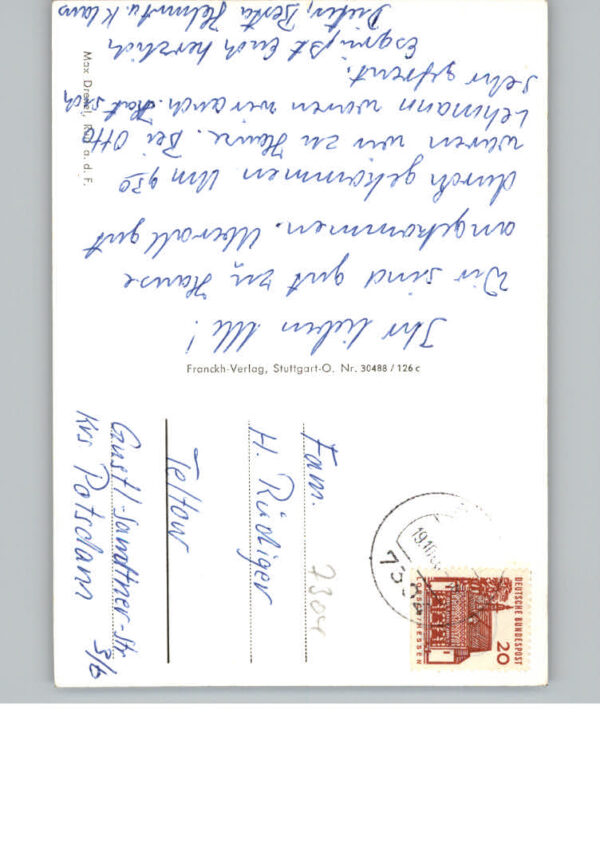 Ihr lieben Alle!
Wir sind gut zu Hause
angekommen. Überall gut
durch gekommen. Um 9³⁰
waren wir zu Hause. Bei Otto
Lehmann waren wir auch. Hat sich
sehr gefreut.
Es grüßt Euch herzlich
Dieter, Berta Helmut u Klaus
Franckh-Verlag, Stuttgart-O. Nr. 30488/126c
Fam.
H. Rüdiger
Teltow
Gustl-Sandtner-Str. 3/6
Krs Potsdam
7304
DEUTSCHE BUNDESPOST
20
HESSEN